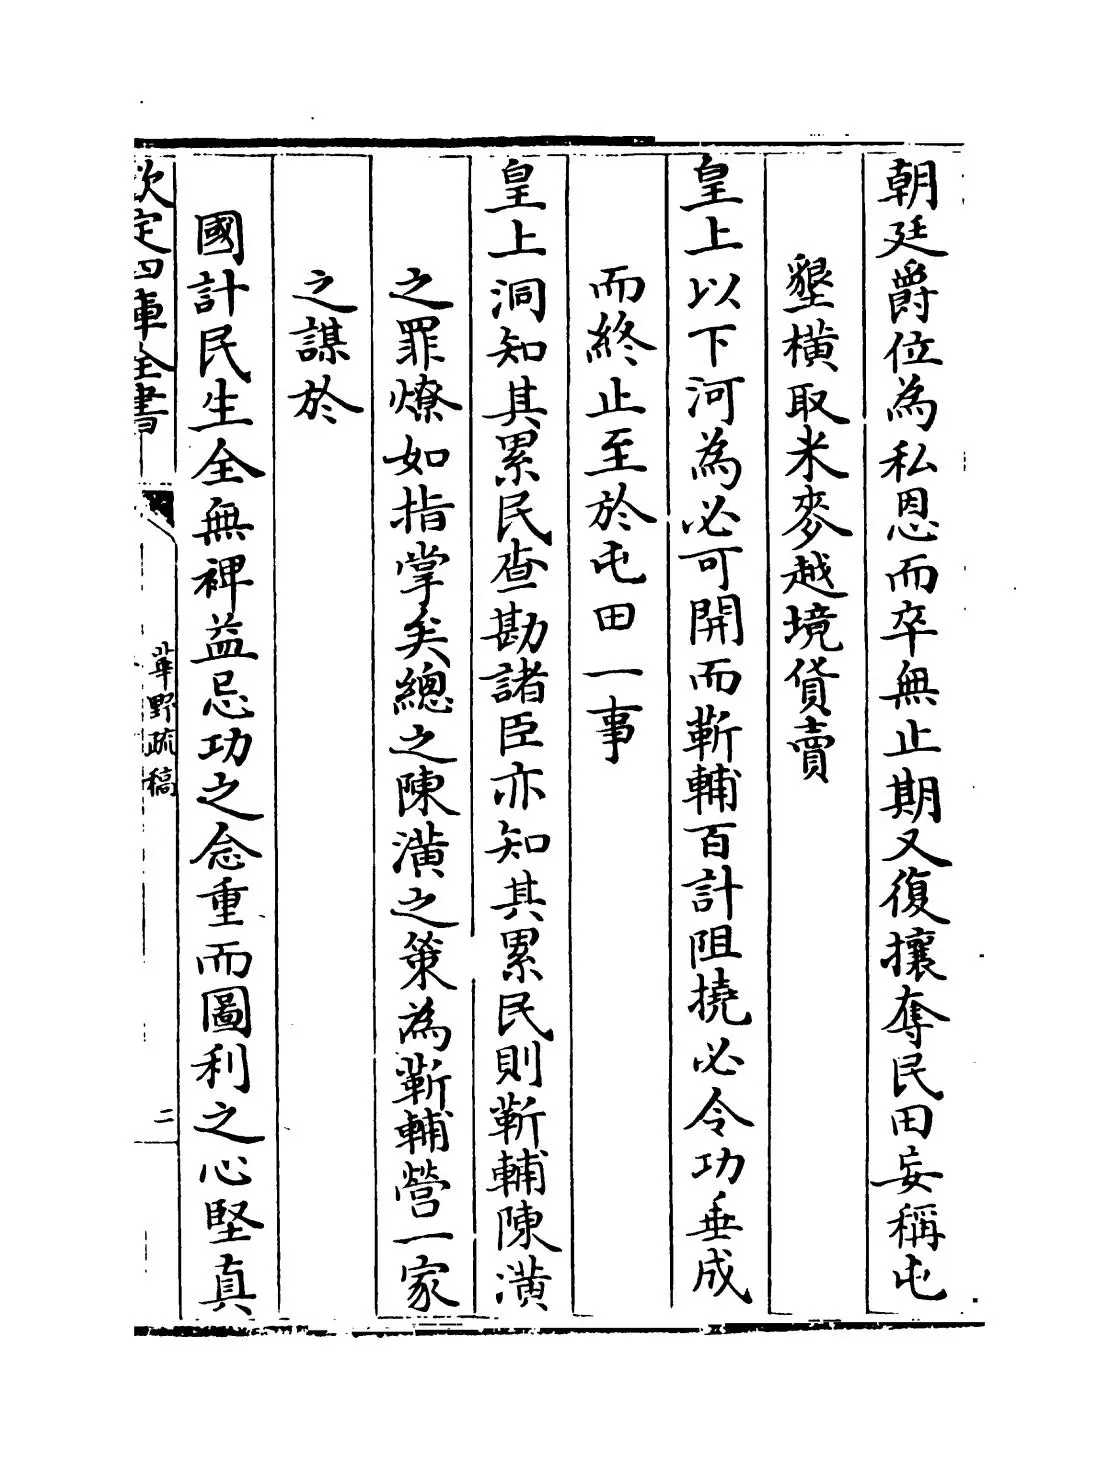 朝廷爵位為私恩而卒無止期又復攘奪民田妄稱屯
墾橫取米麥越境貨賣
皇上以下河為必可開而靳輔百計阻撓必令功垂成
而終止至於屯田一事
皇上洞知其累民查勘諸臣亦知其累民則靳輔陳潢
之罪燎如指掌矣總之陳潢之策為靳輔營一家
之謀於
國計民生全無裨益忌功之念重而圖利之心堅真
欽定四庫全書
華野疏稿
二